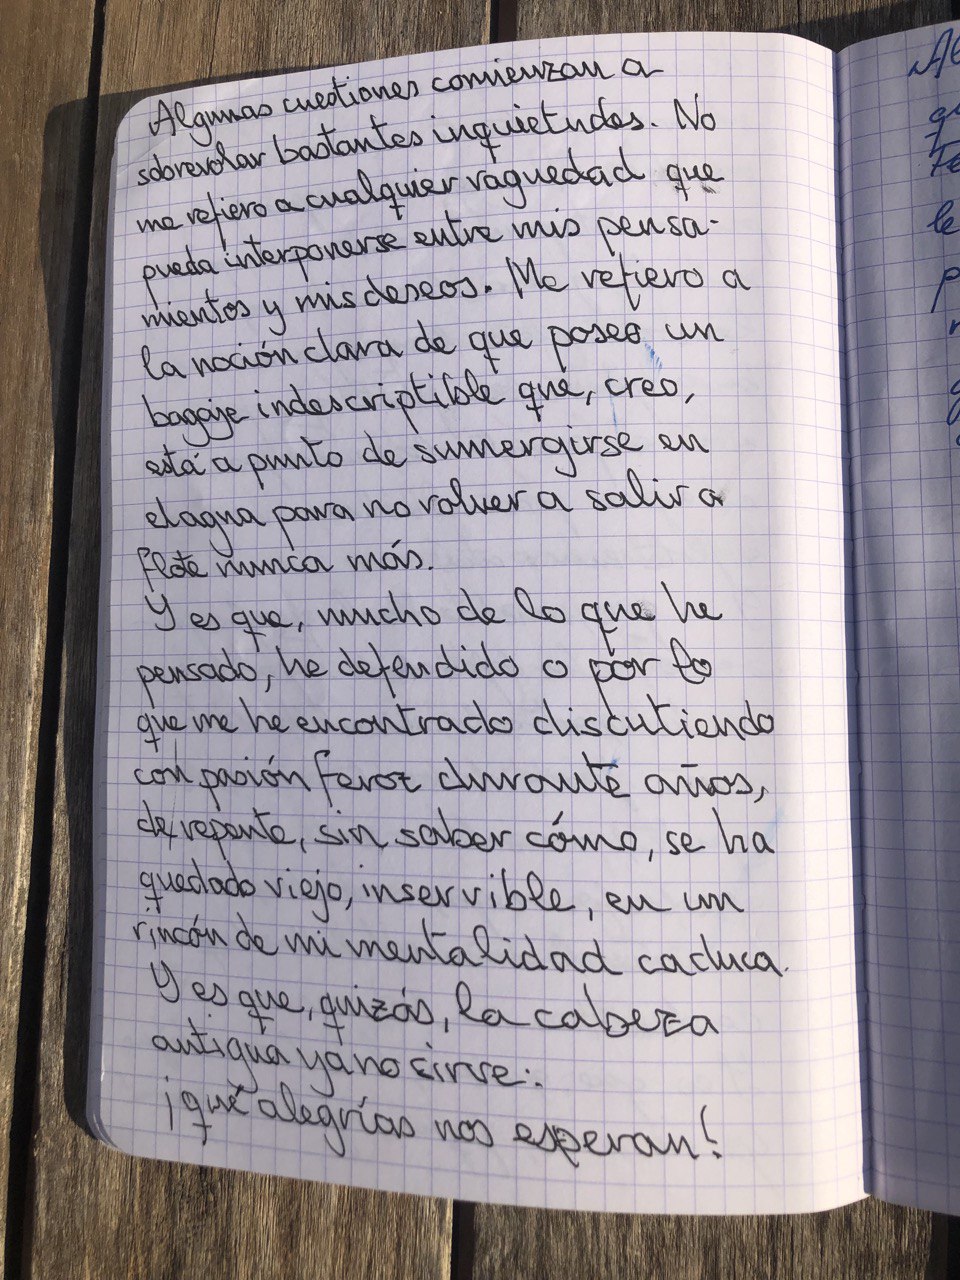 Algunas cuestiones comienzan a
sobrevolar bastantes inquietudes. No
me refiero a cualquier vaguedad que
pueda interponerse entre mis pensa-
mientos y mis deseos. Me refiero a
la noción clara de que poseo un
bagaje indescriptible que, creo,
está a punto de sumergirse en
el agua para no volver a salir a
flote nunca más.
Y es que, mucho de lo que he
pensado, he defendido o por lo
que me he encontrado discutiendo
con pasión feroz durante años,
de repente, sin saber cómo, se ha
quedado viejo, inservible, en un
rincón de mi mentalidad caduca.
Y es que, quizás, la cabeza
antigua ya no sirve:.
¡qué alegrías nos esperan!